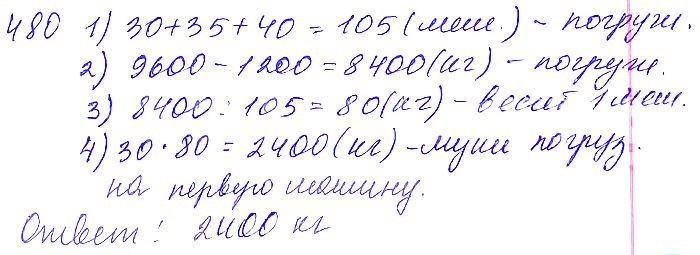 480 1) 30+35+40 = 105 (меш.) - погруж.
2) 9600 - 1200 = 8400 (кг) - погруж.
3) 8400 : 105 = 80 (кг) - весит 1 меш.
4) 30 · 80 = 2400 (кг) - муки погруз.
на первую машину.
Ответ: 2400 кг